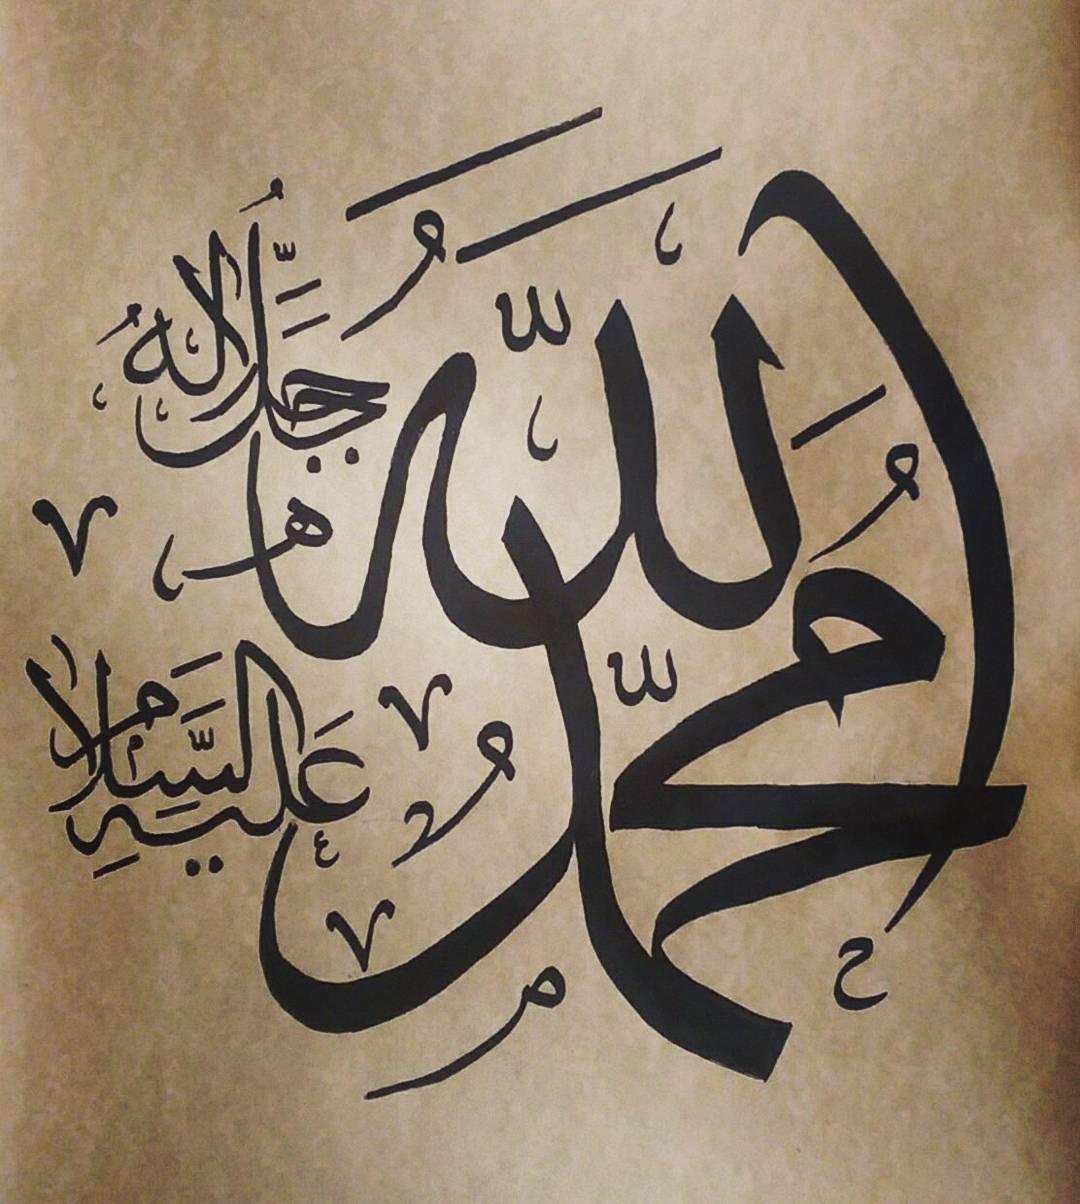 اللّٰهُ
جَلَّ جَلَالُهُ
مُحَمَّدٌ
عَلَيْهِ السَّلَامُ